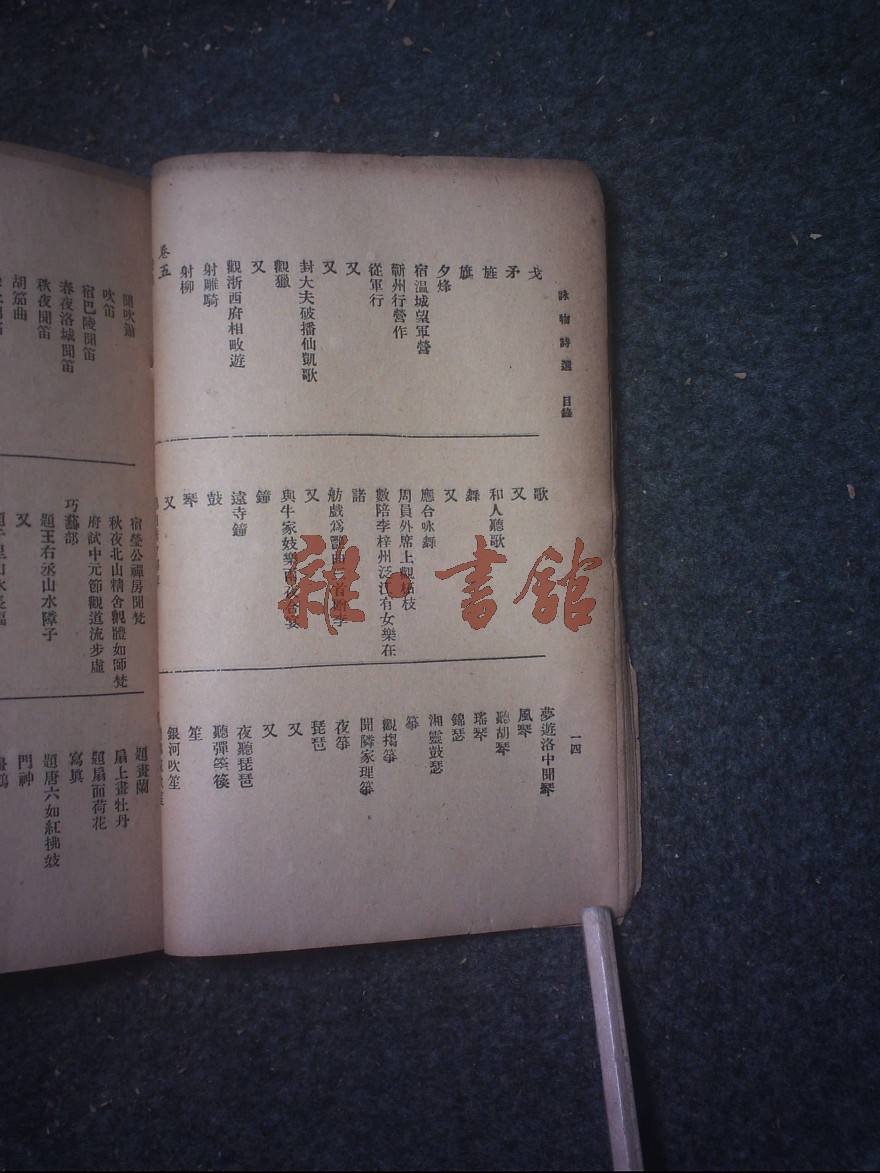 詠物詩選 目錄
一四
戈
矛
旌
旗
夕烽
宿温城望軍營
蘄州行營作
從軍行
又
又
封大夫破播仙凱歌
觀獵
又
觀浙西府相畋遊
射雕騎
射柳
卷五
歌
又
和人聽歌
舞
又
應台咏舞
周員外席上觀柘枝
數陪李梓州泛江有女樂在
諸
舫戲爲豔曲二首贈李
又
與牛家妓樂雨夜合宴
鐘
遠寺鐘
鼓
琴
又
夢遊洛中聞琴
風琴
聽胡琴
瑤琴
錦瑟
湘靈鼓瑟
箏
觀搊箏
聞隣家理箏
夜箏
琵琶
又
又
夜聽琵琶
聽彈箜篌
笙
銀河吹笙
聞吹
吹笛
宿巴陵聞笛
春夜洛城聞笛
秋夜聞笛
胡笳曲
宿瑩公禪房聞梵
秋夜北山精舍觀體如師梵
府試中元節觀道流步虛
巧藝部
題王右丞山水障子
又
題畫蘭
扇上畫牡丹
題扇面荷花
寫真
題唐六如紅拂妓
門神
雜·書館